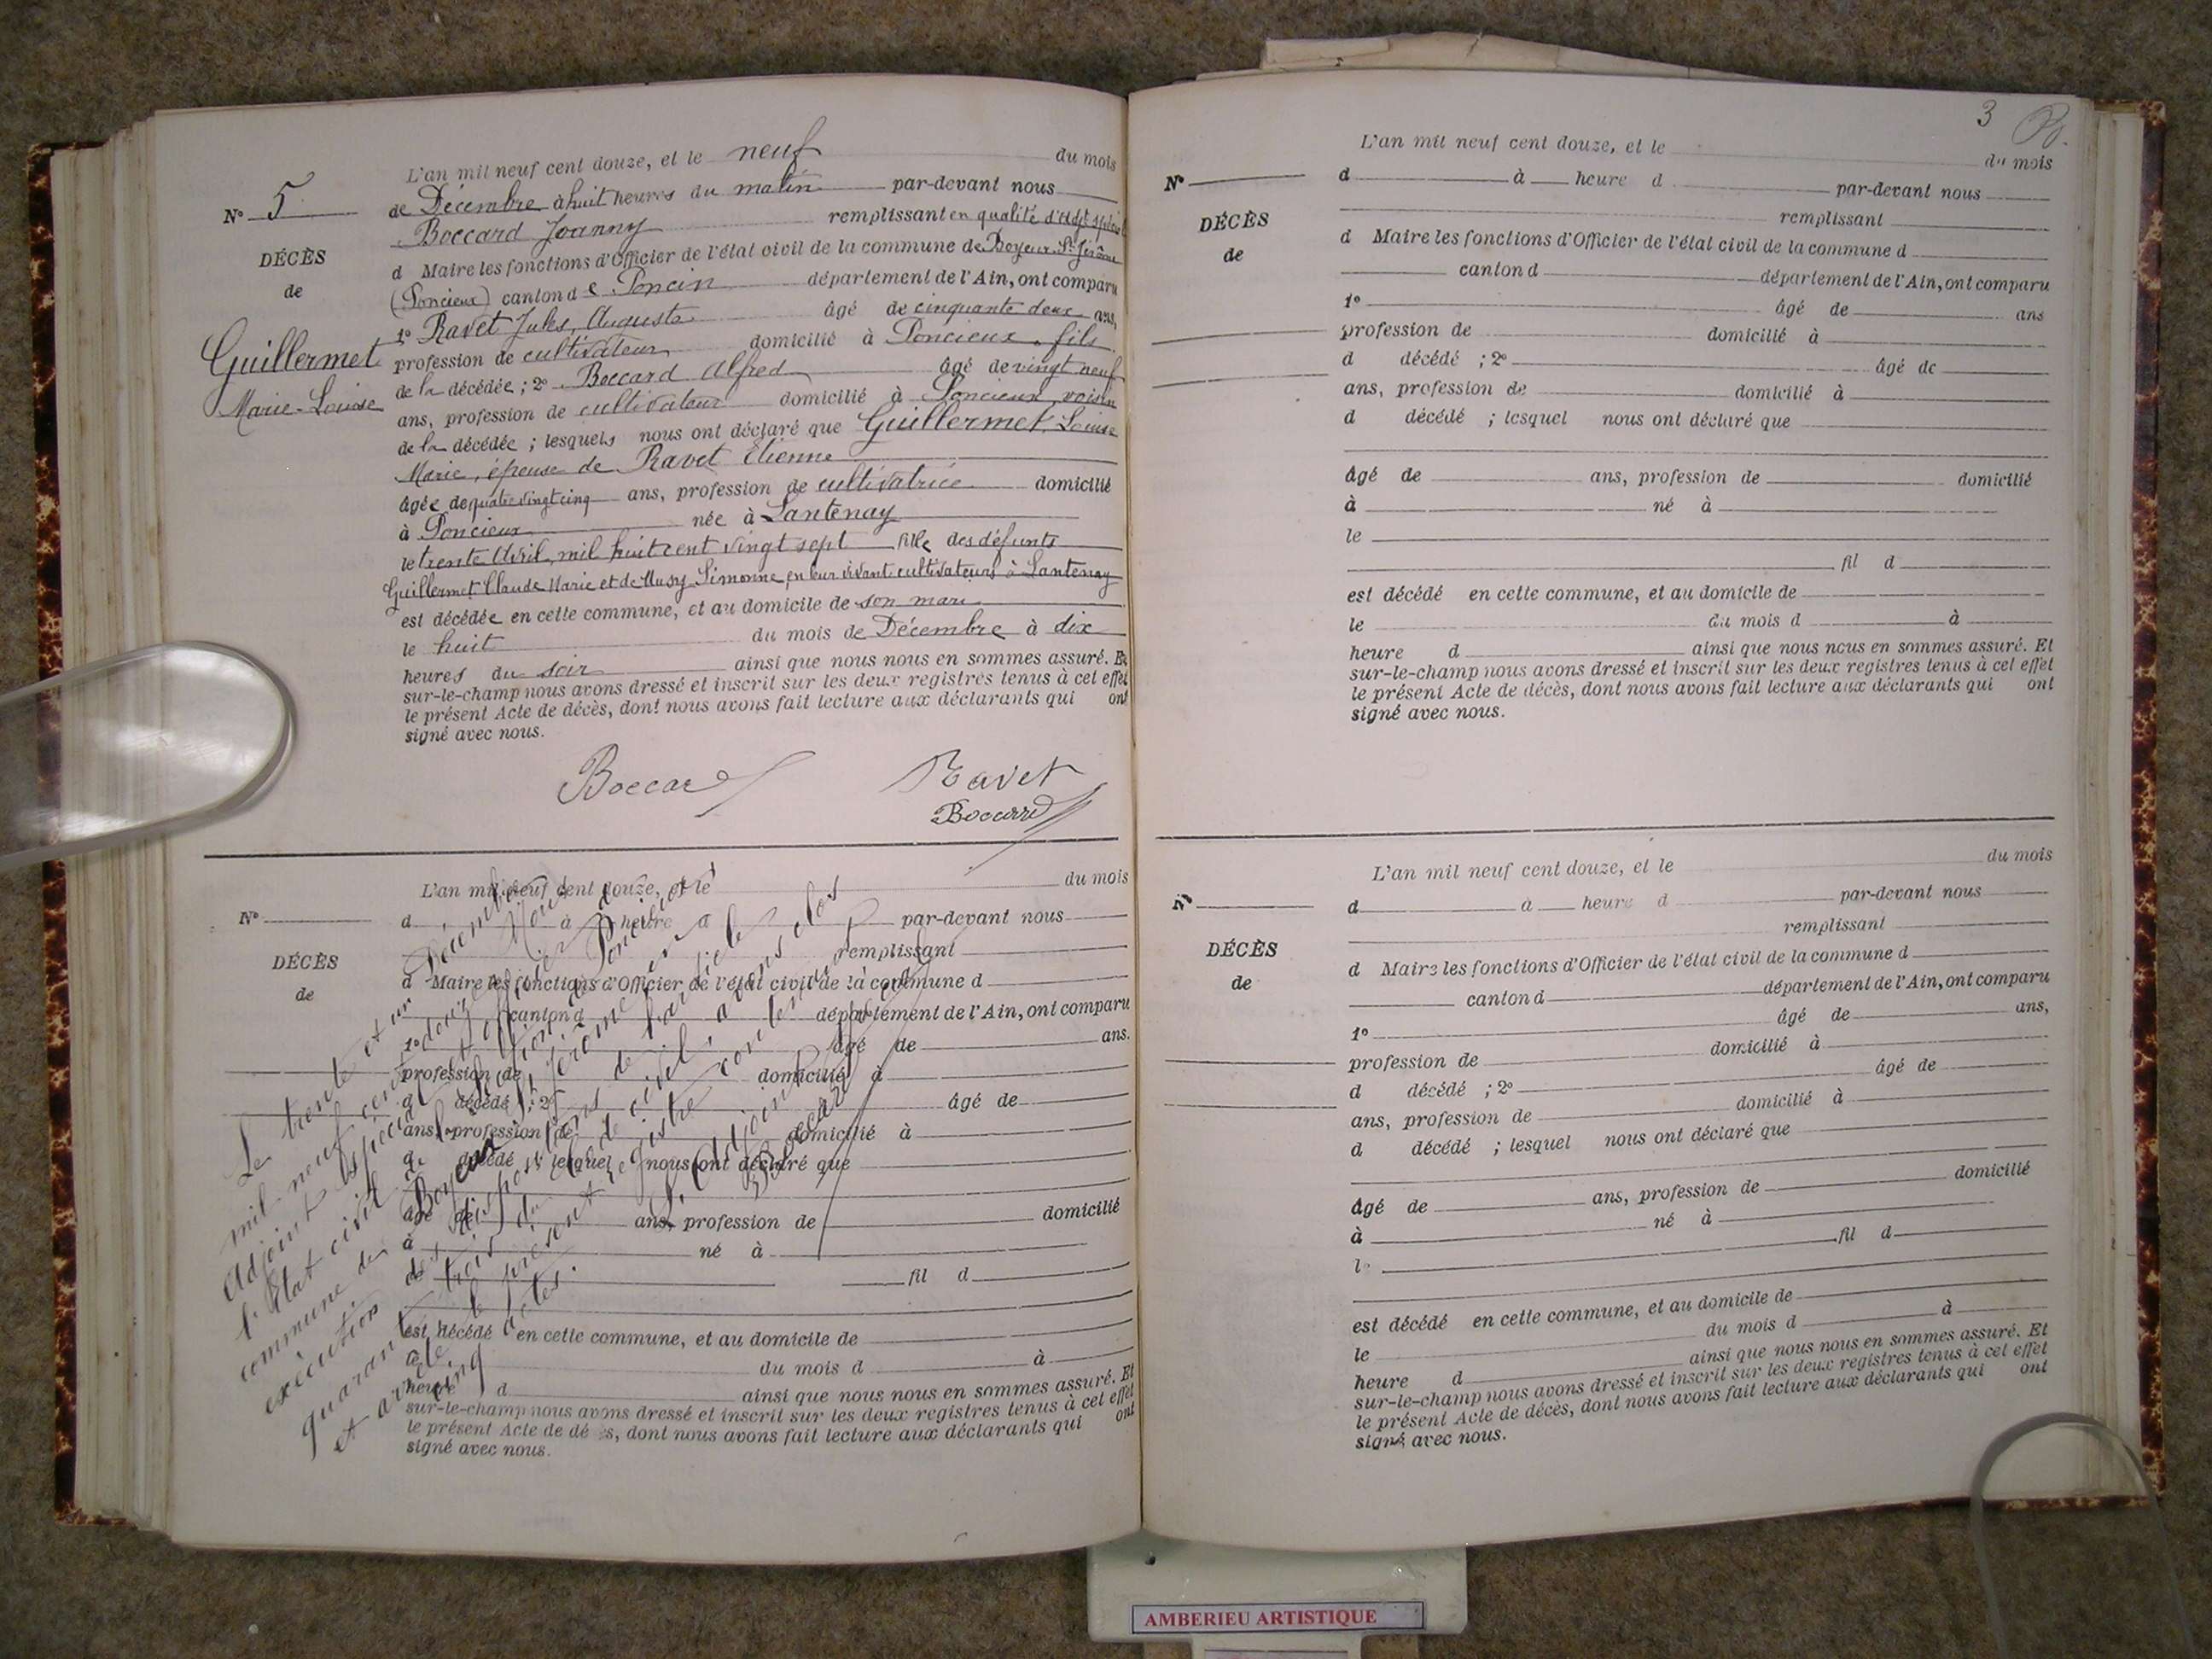 L'an mil neuf cent douze, et le neuf du mois
N° 5
de Décembre à huit heures du matin par-devant nous
Boccard Joanny remplissant en qualité d'Adjt spécial
DÉCÈS
de
Guillermet
Marie-Louise
d Maire les fonctions d'Officier de l'état civil de la commune de Boyeux-St-Jérôme
(Poncieux) canton de Poncin département de l'Ain, ont comparu
1° Ravet Jules, Auguste âgé de cinquante deux ans,
profession de cultivateur domicilié à Poncieux, fils
de la décédée ; 2° Boccard Alfred âgé de vingt neuf
ans, profession de cultivateur domicilié à Poncieux, voisin
de la décédée ; lesquels nous ont déclaré que Guillermet Louise
Marie, épouse de Ravet Etienne
âgée de quatre vingt cinq ans, profession de cultivatrice domicilié
à Poncieux née à Lantenay
le trente Avril, mil huit cent vingt sept fille des défunts
Guillermet Claude Marie et de Musy Simonne, en leur vivant cultivateurs à Lantenay
est décédée en cette commune, et au domicile de son mari
le huit du mois de Décembre à dix
heures du soir ainsi que nous nous en sommes assuré. Et
sur-le-champ nous avons dressé et inscrit sur les deux registres tenus à cet effet
le présent Acte de décès, dont nous avons fait lecture aux déclarants qui ont
signé avec nous.
Boccard Ravet
Boccard
L'an mil neuf cent douze, et le du mois
N°
d à heure d par-devant nous
remplissant
DÉCÈS
de
d Maire les fonctions d'Officier de l'état civil de la commune d
canton d département de l'Ain, ont comparu
1° âgé de ans.
profession de domicilié à
d décédé ; 2° âgé de
ans, profession de domicilié à
d décédé ; lesquel nous ont déclaré que
âgé de ans, profession de domicilié
à né à
le
fil d
est décédé en cette commune, et au domicile de
le du mois d à
heure d ainsi que nous nous en sommes assuré. Et
sur-le-champ nous avons dressé et inscrit sur les deux registres tenus à cet effet
le présent Acte de décès, dont nous avons fait lecture aux déclarants qui ont
signé avec nous.
Le trente et un Décembre
mil neuf cent douze, Nous
Adjoint spécial et officier de
l'État civil de la section de Poncieux
commune de Boyeux St Jérôme, en
exécution des dispositions de l'article
quarante trois du Code civil, avons clos
et arrêté le présent registre contenant
cinq actes.
L'Adjoint spécial
Boccard
3
L'an mil neuf cent douze, et le du mois
N°
d à heure d par-devant nous
remplissant
DÉCÈS
de
d Maire les fonctions d'Officier de l'état civil de la commune d
canton d département de l'Ain, ont comparu
1° âgé de ans
profession de domicilié à
d décédé ; 2° âgé de
ans, profession de domicilié à
d décédé ; lesquel nous ont déclaré que
âgé de ans, profession de domicilié
à né à
le
fil d
est décédé en cette commune, et au domicile de
le du mois d à
heure d ainsi que nous nous en sommes assuré. Et
sur-le-champ nous avons dressé et inscrit sur les deux registres tenus à cet effet
le présent Acte de décès, dont nous avons fait lecture aux déclarants qui ont
signé avec nous.
L'an mil neuf cent douze, et le du mois
N°
d à heure d par-devant nous
remplissant
DÉCÈS
de
d Maire les fonctions d'Officier de l'état civil de la commune d
canton d département de l'Ain, ont comparu
1° âgé de ans,
profession de domicilié à
d décédé ; 2° âgé de
ans, profession de domicilié à
d décédé ; lesquel nous ont déclaré que
âgé de ans, profession de domicilié
à né à
l fil d
est décédé en cette commune, et au domicile de
le du mois d à
heure d ainsi que nous nous en sommes assuré. Et
sur-le-champ nous avons dressé et inscrit sur les deux registres tenus à cet effet
le présent Acte de décès, dont nous avons fait lecture aux déclarants qui ont
signé avec nous.
AMBERIEU ARTISTIQUE